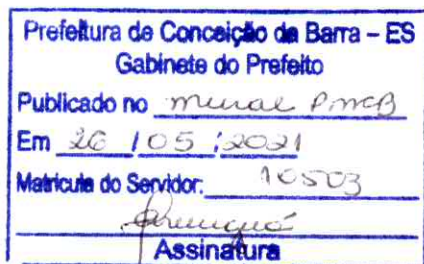 Prefeitura de Conceição da Barra – ES
Gabinete do Prefeito
Publicado no mural PMCB
Em 26 / 05 / 2021
Matrícula do Servidor: 10503
Assinatura